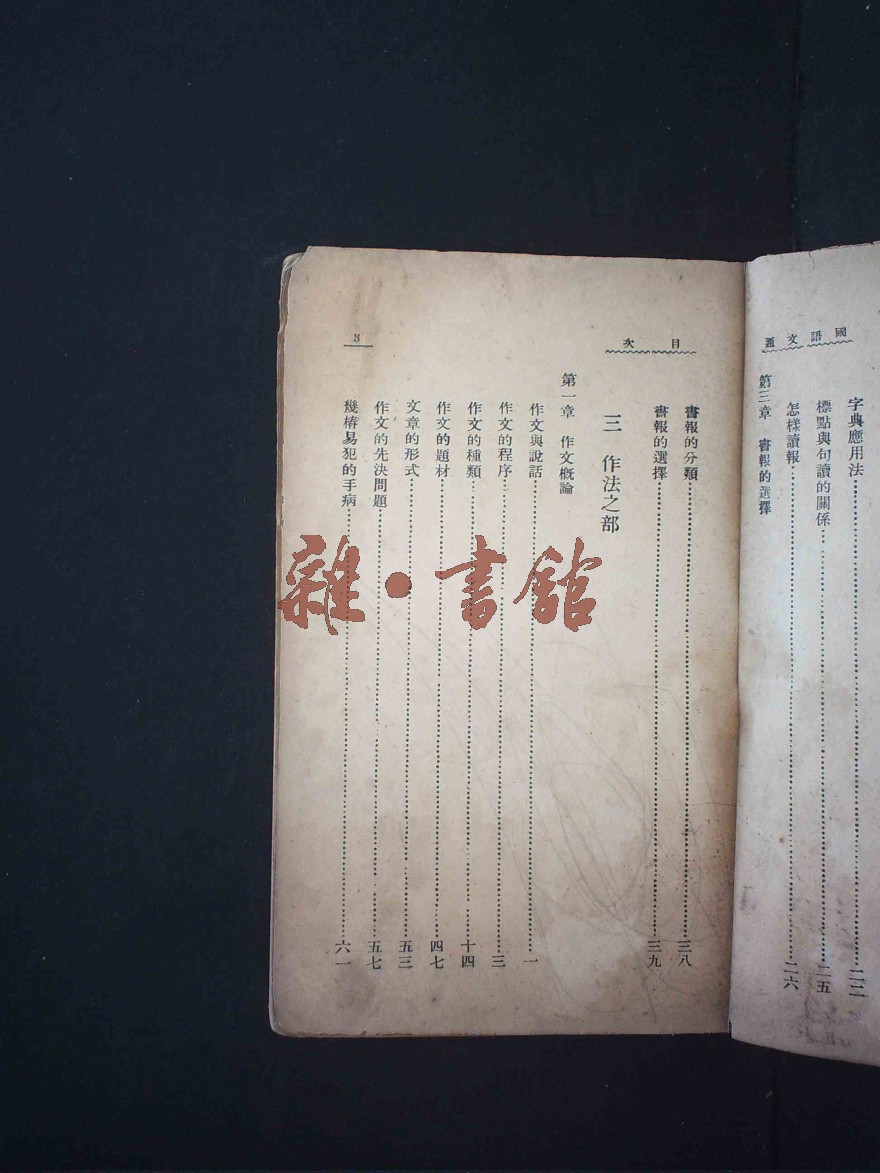 國語文通
字典應用法……二二
標點與句讀的關係……二五
怎樣讀報……二六
第三章 書報的選擇
目次
書報的分類……三八
書報的選擇……三九
三 作法之部
第一章 作文概論
作文與說話……一
作文的程序……三
作文的種類……十四
作文的題材……四七
文章的形式……五三
作文的先決問題……五七
幾樁易犯的手病……六一
3
雜·書館